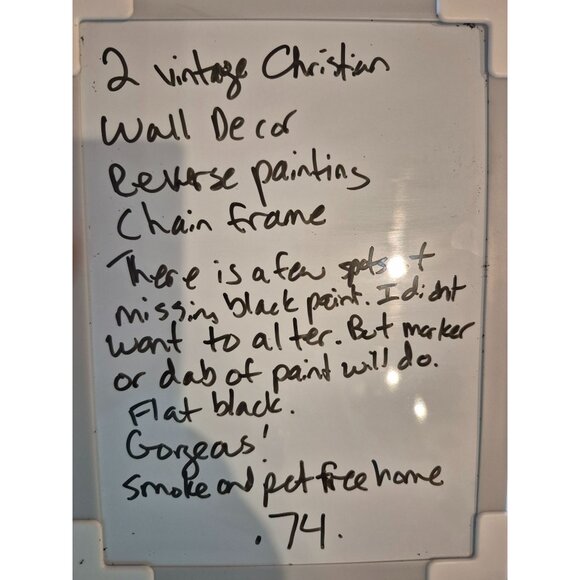 2 vintage Christian
Wall Decor
Reverse painting
Chain frame
There is a few spots +
missing black paint. I didnt
want to alter. But marker
or dab of paint will do.
Flat black.
Gorgeas!
Smoke and pet free home
.74.